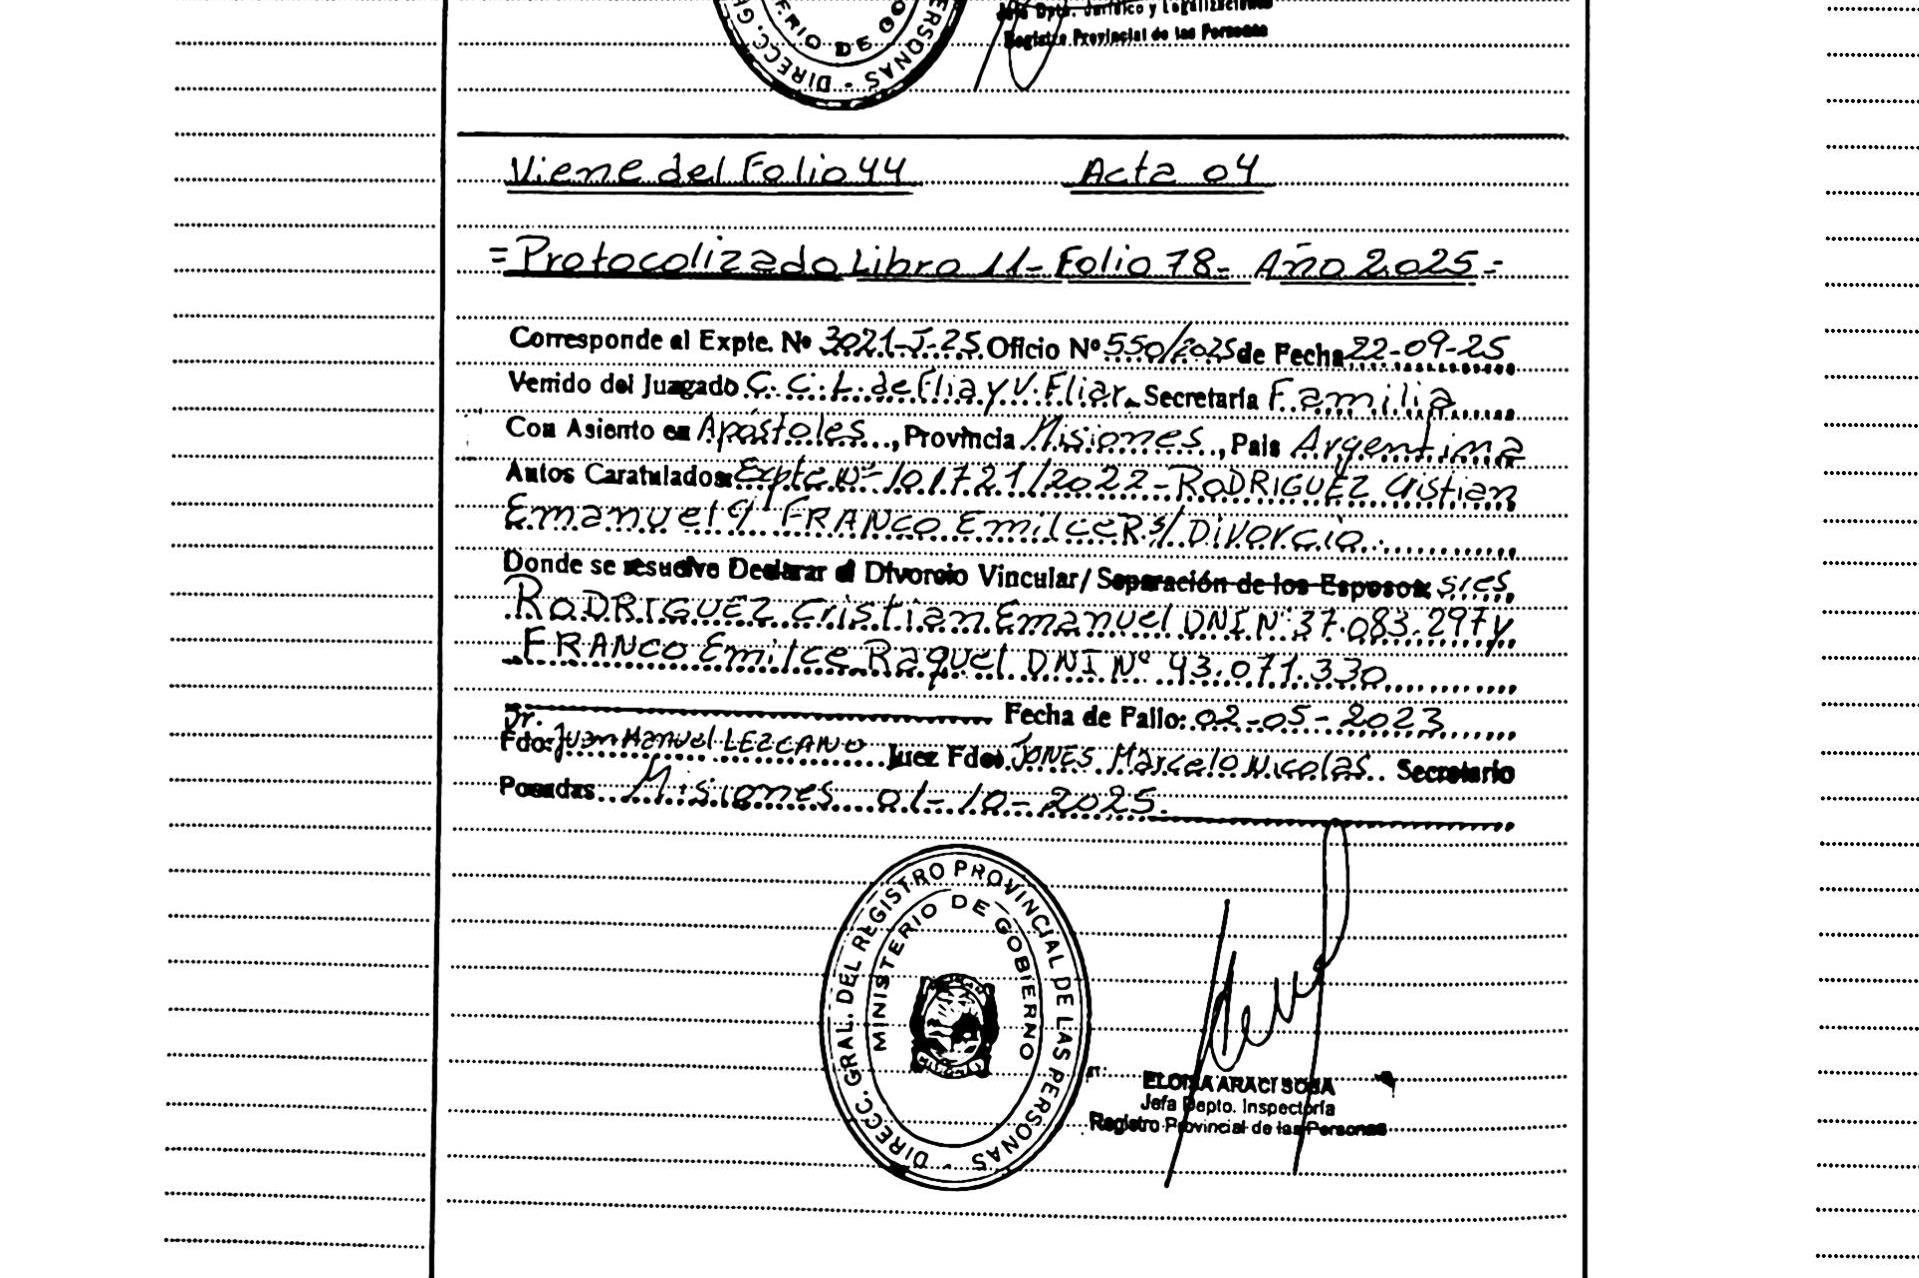 DIRECC. G
ERIO DE GO
ERSONAS -
Jefa Dpto. Jurídico y Legalizaciones
Registro Provincial de las Personas
Viene del Folio 44 Acta 04
= Protocolizado Libro 11- Folio 78- Año 2.025 =
Corresponde al Expte. Nº 3021-J-25 Oficio Nº 550/2025 de Fecha 22-09-25
Venido del Juzgado C. C. L. de Flia y V. Fliar. Secretaría Familia
Con Asiento en Apóstoles, Provincia Misiones, País Argentina
Autos Caratulados: Expte Nº 101721/2022-RODRIGUEZ Cristian
Emanuel y FRANCO Emilce R s/ Divorcio.
Donde se resuelve Declarar el Divorcio Vincular/ Separación de los Esposos: sres,
RODRIGUEZ Cristian Emanuel DNI Nº 37.083.297 y
FRANCO Emilce Raquel DNI Nº 43.071.330
Fecha de Fallo: 02-05-2023
Dr.
Fdo: Juan Manuel LEZCANO Juez Fdo: JONES Marcelo Nicolas. Secretario
Posadas Misiones 01-10-2025.
DIRECC. GRAL. DEL REGISTRO PROVINCIAL DE LAS PERSONAS -
MINISTERIO DE GOBIERNO
ELOISA ARACI SOSA
Jefa Depto. Inspectoría
Registro Provincial de las Personas